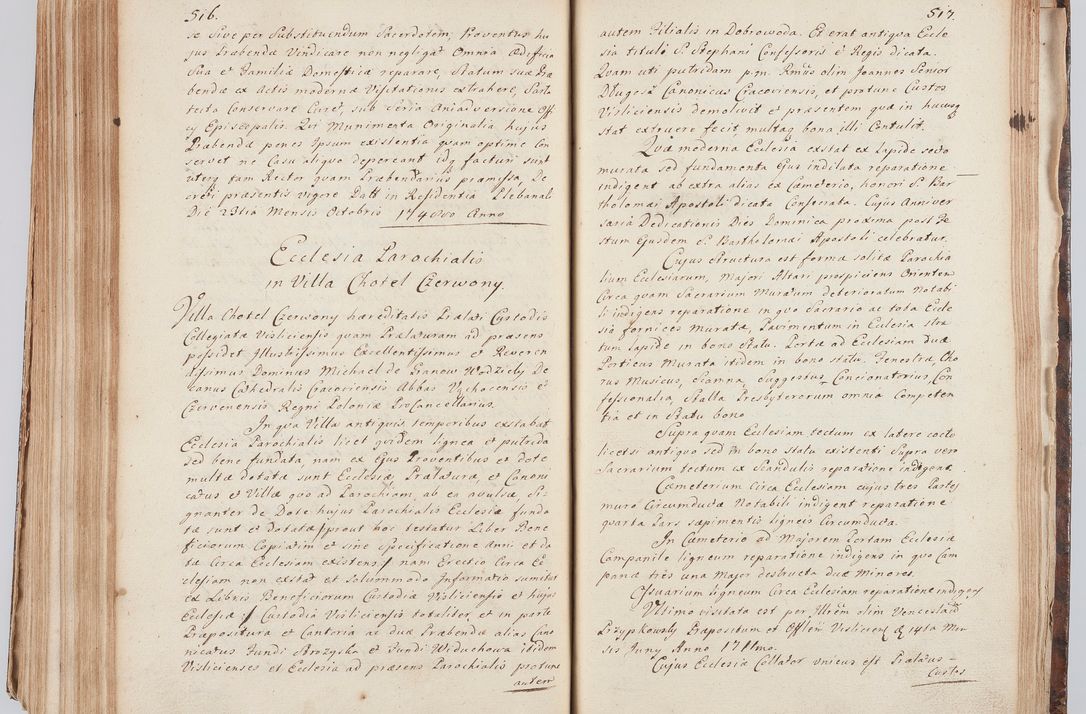 516.
se sive per Substituendum Sacerdotem, Proventus hu
jus Præbendæ Vindicare non negligat Omnia Ædificia
Sua et Familiæ Domesticæ reparare, Statum suæ Præ
bendæ ex Actis modernæ Visitationis extrahere, Sart
tecta Conservare Curet, sub Seria Aniadversione Off
cy Episcopalis. Qui Munimenta Originalia hujus
Præbendæ penes Ipsum existentia quam optime Con
servet ne Casu aliquo depereant idq facturi sunt
uterq tam Rector quam Præbendarius præmissa De
creti præsentis vigore Datt in Residentia Plebanali
Die 23tia Mensis Octobris 1740mo Anno
Ecclesia Parochialis
in Villa Chotel Czerwony.
Villa Chotel Czerwony hæreditatis Prælati Custodis
Collegiatæ Visliciensis quam Prælaturam ad præsens
possidet Illustrissimus Excellentissimus et Reveren
dissimus Dominus Michael de Granow Wodzicky De
canus Cathedralis Cracoviensis Abbas Vąchocensis et
Czervenensis Regni Poloniæ ProCancellarius.
In qua Villa antiquis temporibus exstabat
Ecclesia Parochialis licet quidem lignea et putrida
sed bene fundata, nam ex Ejus Proventibus et Dote
multæ dotatæ sunt Ecclesiæ, Prælaturæ, et Canoni
catus et Villæ quo ad Parochiam, ab ea avulsæ, Sig
nanter de Dote hujus Parochialis Ecclesiæ funda
tæ sunt et dotatæ prout hoc testatur Liber Bene
ficiorum Copiatim et sine specificatione Anni et da
tæ Circa Ecclesiam existens nam Erectio Circa Ec
clesiam non extat et solummodo Informatio sumitur
ex Libris Beneficiorum Custodiæ Visliciensis et hujus
Ecclesiæ / Custodia Visliciensis totaliter, et in parte
Præpositura et Cantoria ac duæ Præbendæ alias Cano
nicatus Fundi Strożysko et Fundi Widuchowa itidem
Vislicienses et Ecclesia ad præsens Parochialis pro tunc
autem
517.
autem Filialis in Dobrowoda. Et erat antiqva Eccle
sia tituli S. Stephani Confessoris et Regis dicata.
Quam uti putridam p.m. Rmus olim Joannes Senior
Długosz Canonicus Cracoviensis, et protunc Custos
Visliciensis demolivit et præsentem quæ in hucusq
stat extruere fecit, multaq bona illi Contulit.
Quæ moderna Ecclesia exstat ex Lapide secto
murata sed fundamenta Ejus indilata reparatione
indigent ab extra alias ex Cæmeterio, honori S. Bar
tholomæi Apostoli dicata Consecrata. Cujus Anniver
saria Dedicationis Dies Dominica proxima post Fe
stum Ejusdem S. Bartholomæi Apostoli celebratur.
Cujus Structura est forma solita Parochia
lium Ecclesiarum, Majori Altari prospiciens Orientem
Circa quam Sacrarium Muratum deterioratum Notabi
li indigens reparatione in quo Sacrario ac tota Eccle
sia fornices Muratæ, Pavimentum in Ecclesia stra
tum Lapide in bono Statu. Portæ ad Ecclesiam duæ
Porticus Murata itidem in bono statu. Fenestræ Cho
rus Musicus, Scamna, Suggestus Concionatorius, Con
fessionalia, Stalla Presbyterorum omnia Competen
tia et in Statu bono
Supra quam Ecclesiam tectum ex latere cocto
licetsi antiquo sed in bono statu existenti Supra vero
Sacrarium tectum ex Scandulis reparatione indigent
Cæmeterium Circa Ecclesiam cujus tres Partes
muro Circumductæ Notabili indigent reparatione
quarta Pars sæpimentis ligneis Circumducta.
In Cæmeterio ad Majorem Portam Ecclesiæ
Campanile ligneum reparatione indigens in quo Cam
panæ tres una Major destructa duæ Minores
Ossuarium ligneum Circa Ecclesiam reparatione indigens
Ultimo visitata est per Illrem olim Venceslaū
Przypkowsky Præpositum et Offlem Visliciens die 14ta Men
sis Juny Anno 1711mo.
Cujus Ecclesiæ Collator unicus est Prælatus
Custos